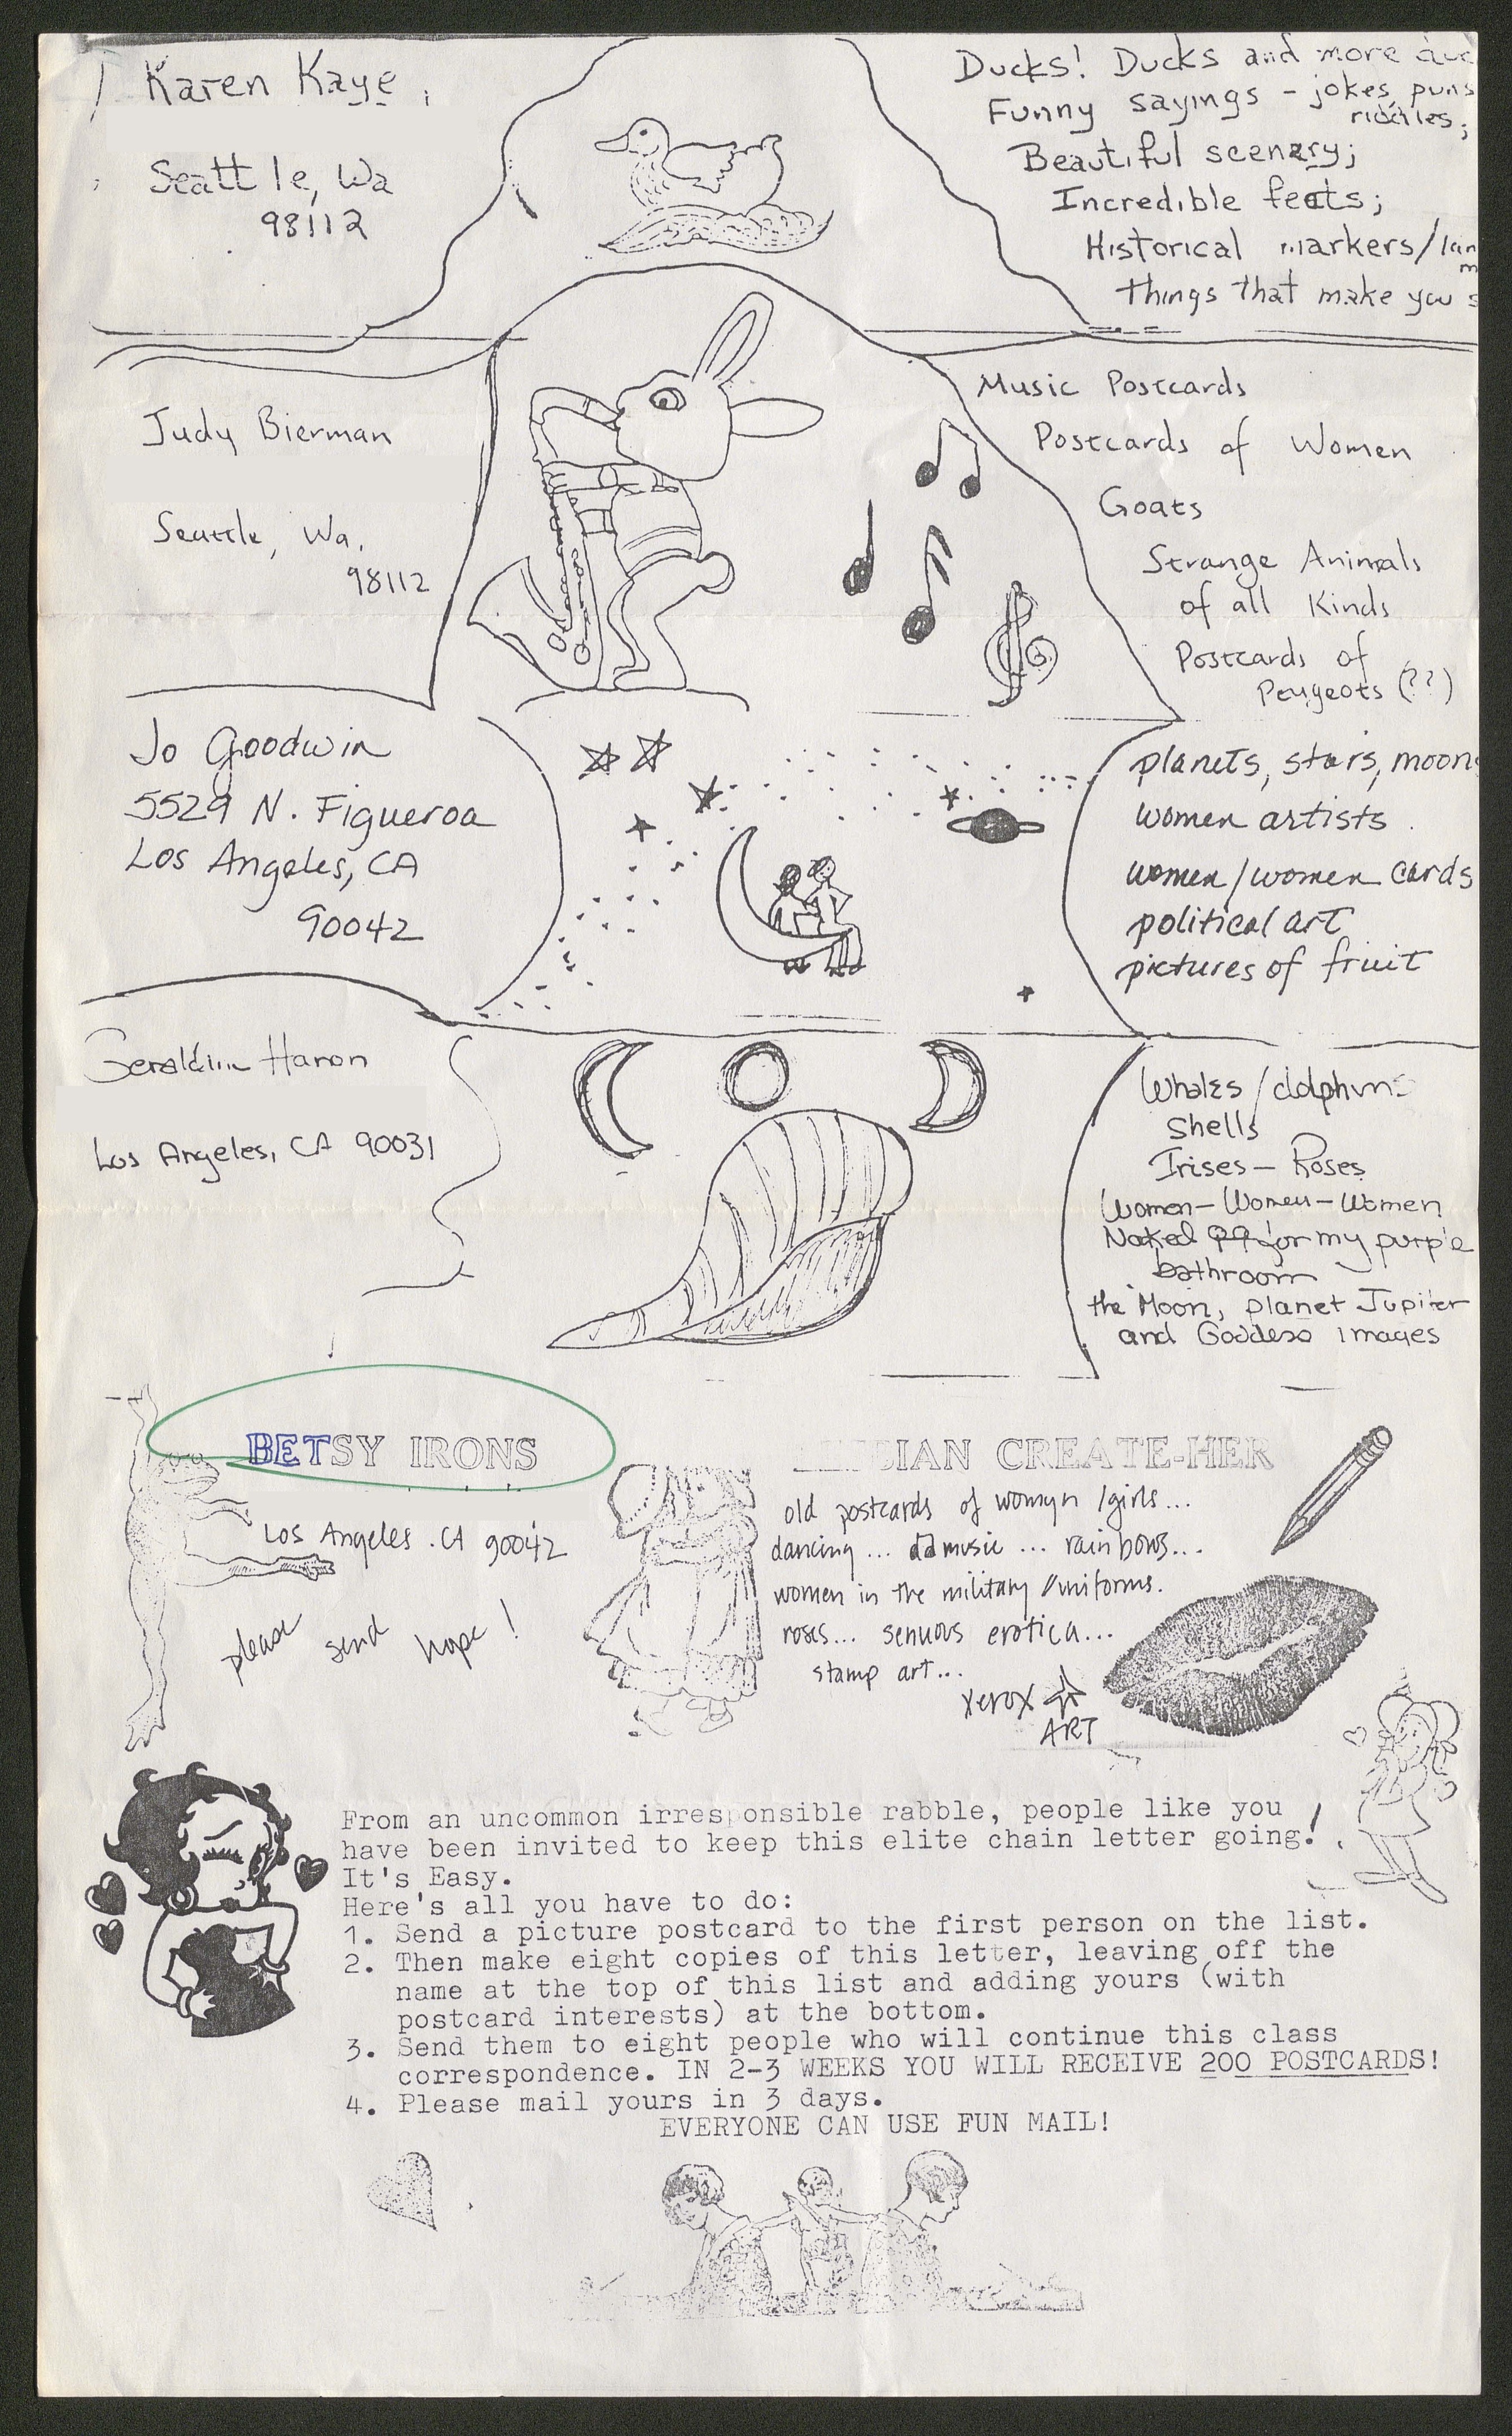 Karen Kaye,
Seattle, Wa
98112
Ducks! Ducks and more
Funny sayings - jokes, puns
riddles;
Beautiful scenery;
Incredible feats;
Historical markers/
things that make you
Judy Bierman
Seattle, Wa.
98112
Music Postcards
Postcards of Women
Goats
Strange Animals
of all Kinds
Postcards of
Peugeots (??)
Jo Goodwin
5529 N. Figueroa
Los Angeles, CA
90042
planets, stars, moons
women artists
women/women cards
political art
pictures of fruit
Geraldine Hanon
Los Angeles, CA 90031
Whales/dolphins
Shells
Irises - Roses
Women - Women - Women
Naked for my purple
bathroom
the Moon, planet Jupiter
and Goddess images
BETSY IRONS
Los Angeles. CA 90042
please send hope!
BIAN CREATE-HER
old postcards of womyn/girls...
dancing... music... rainbows...
women in the military/uniforms.
roses... senuous erotica...
stamp art...
xerox
ART
From an uncommon irresponsible rabble, people like you
have been invited to keep this elite chain letter going!
It's Easy.
Here's all you have to do:
1. Send a picture postcard to the first person on the list.
2. Then make eight copies of this letter, leaving off the
name at the top of this list and adding yours (with
postcard interests) at the bottom.
3. Send them to eight people who will continue this class
correspondence. IN 2-3 WEEKS YOU WILL RECEIVE 200 POSTCARDS!
4. Please mail yours in 3 days.
EVERYONE CAN USE FUN MAIL!